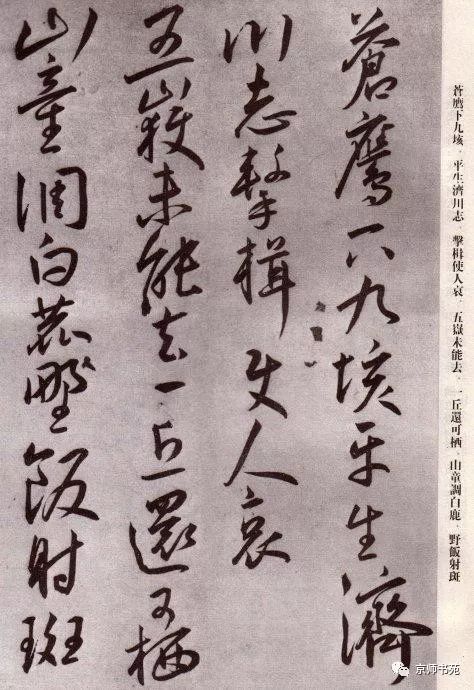 蒼鷹下九垓平生濟
川志擊楫使人哀
五嶽未能去一丘還可栖
山童調白鹿野飯射斑
蒼鷹下九垓 平生濟川志 擊楫使人哀 五嶽未能去 一丘還可栖 山童調白鹿 野飯射斑
京师书苑